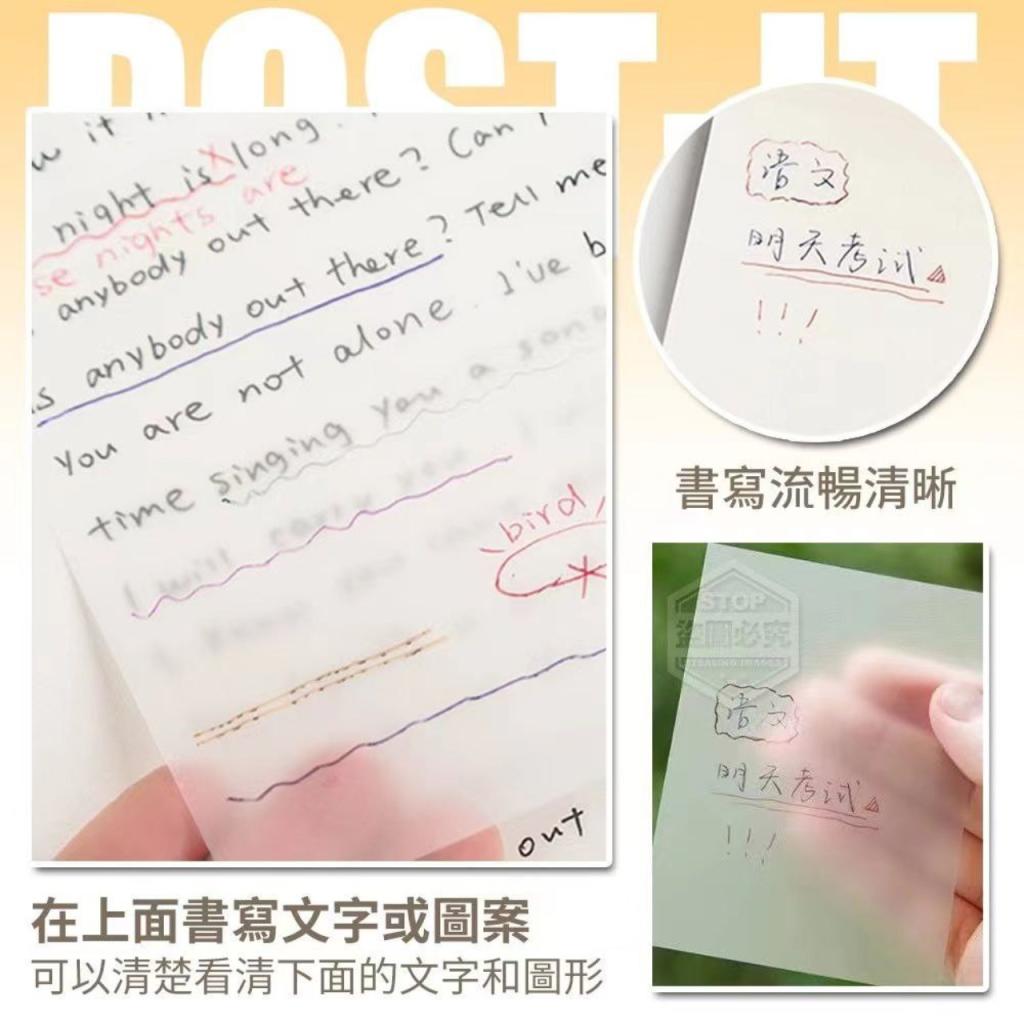 POST-IT
night is long.
se nights are
anybody out there? Can
is anybody out there? Tell me
you are not alone. I've b
time singing you a song
I will carry you
bird
out
语文
明天考试
!!!
書寫流暢清晰
STOP
盜圖必究
STEALING IMAGES
语文
明天考试
!!!
在上面書寫文字或圖案
可以清楚看清下面的文字和圖形